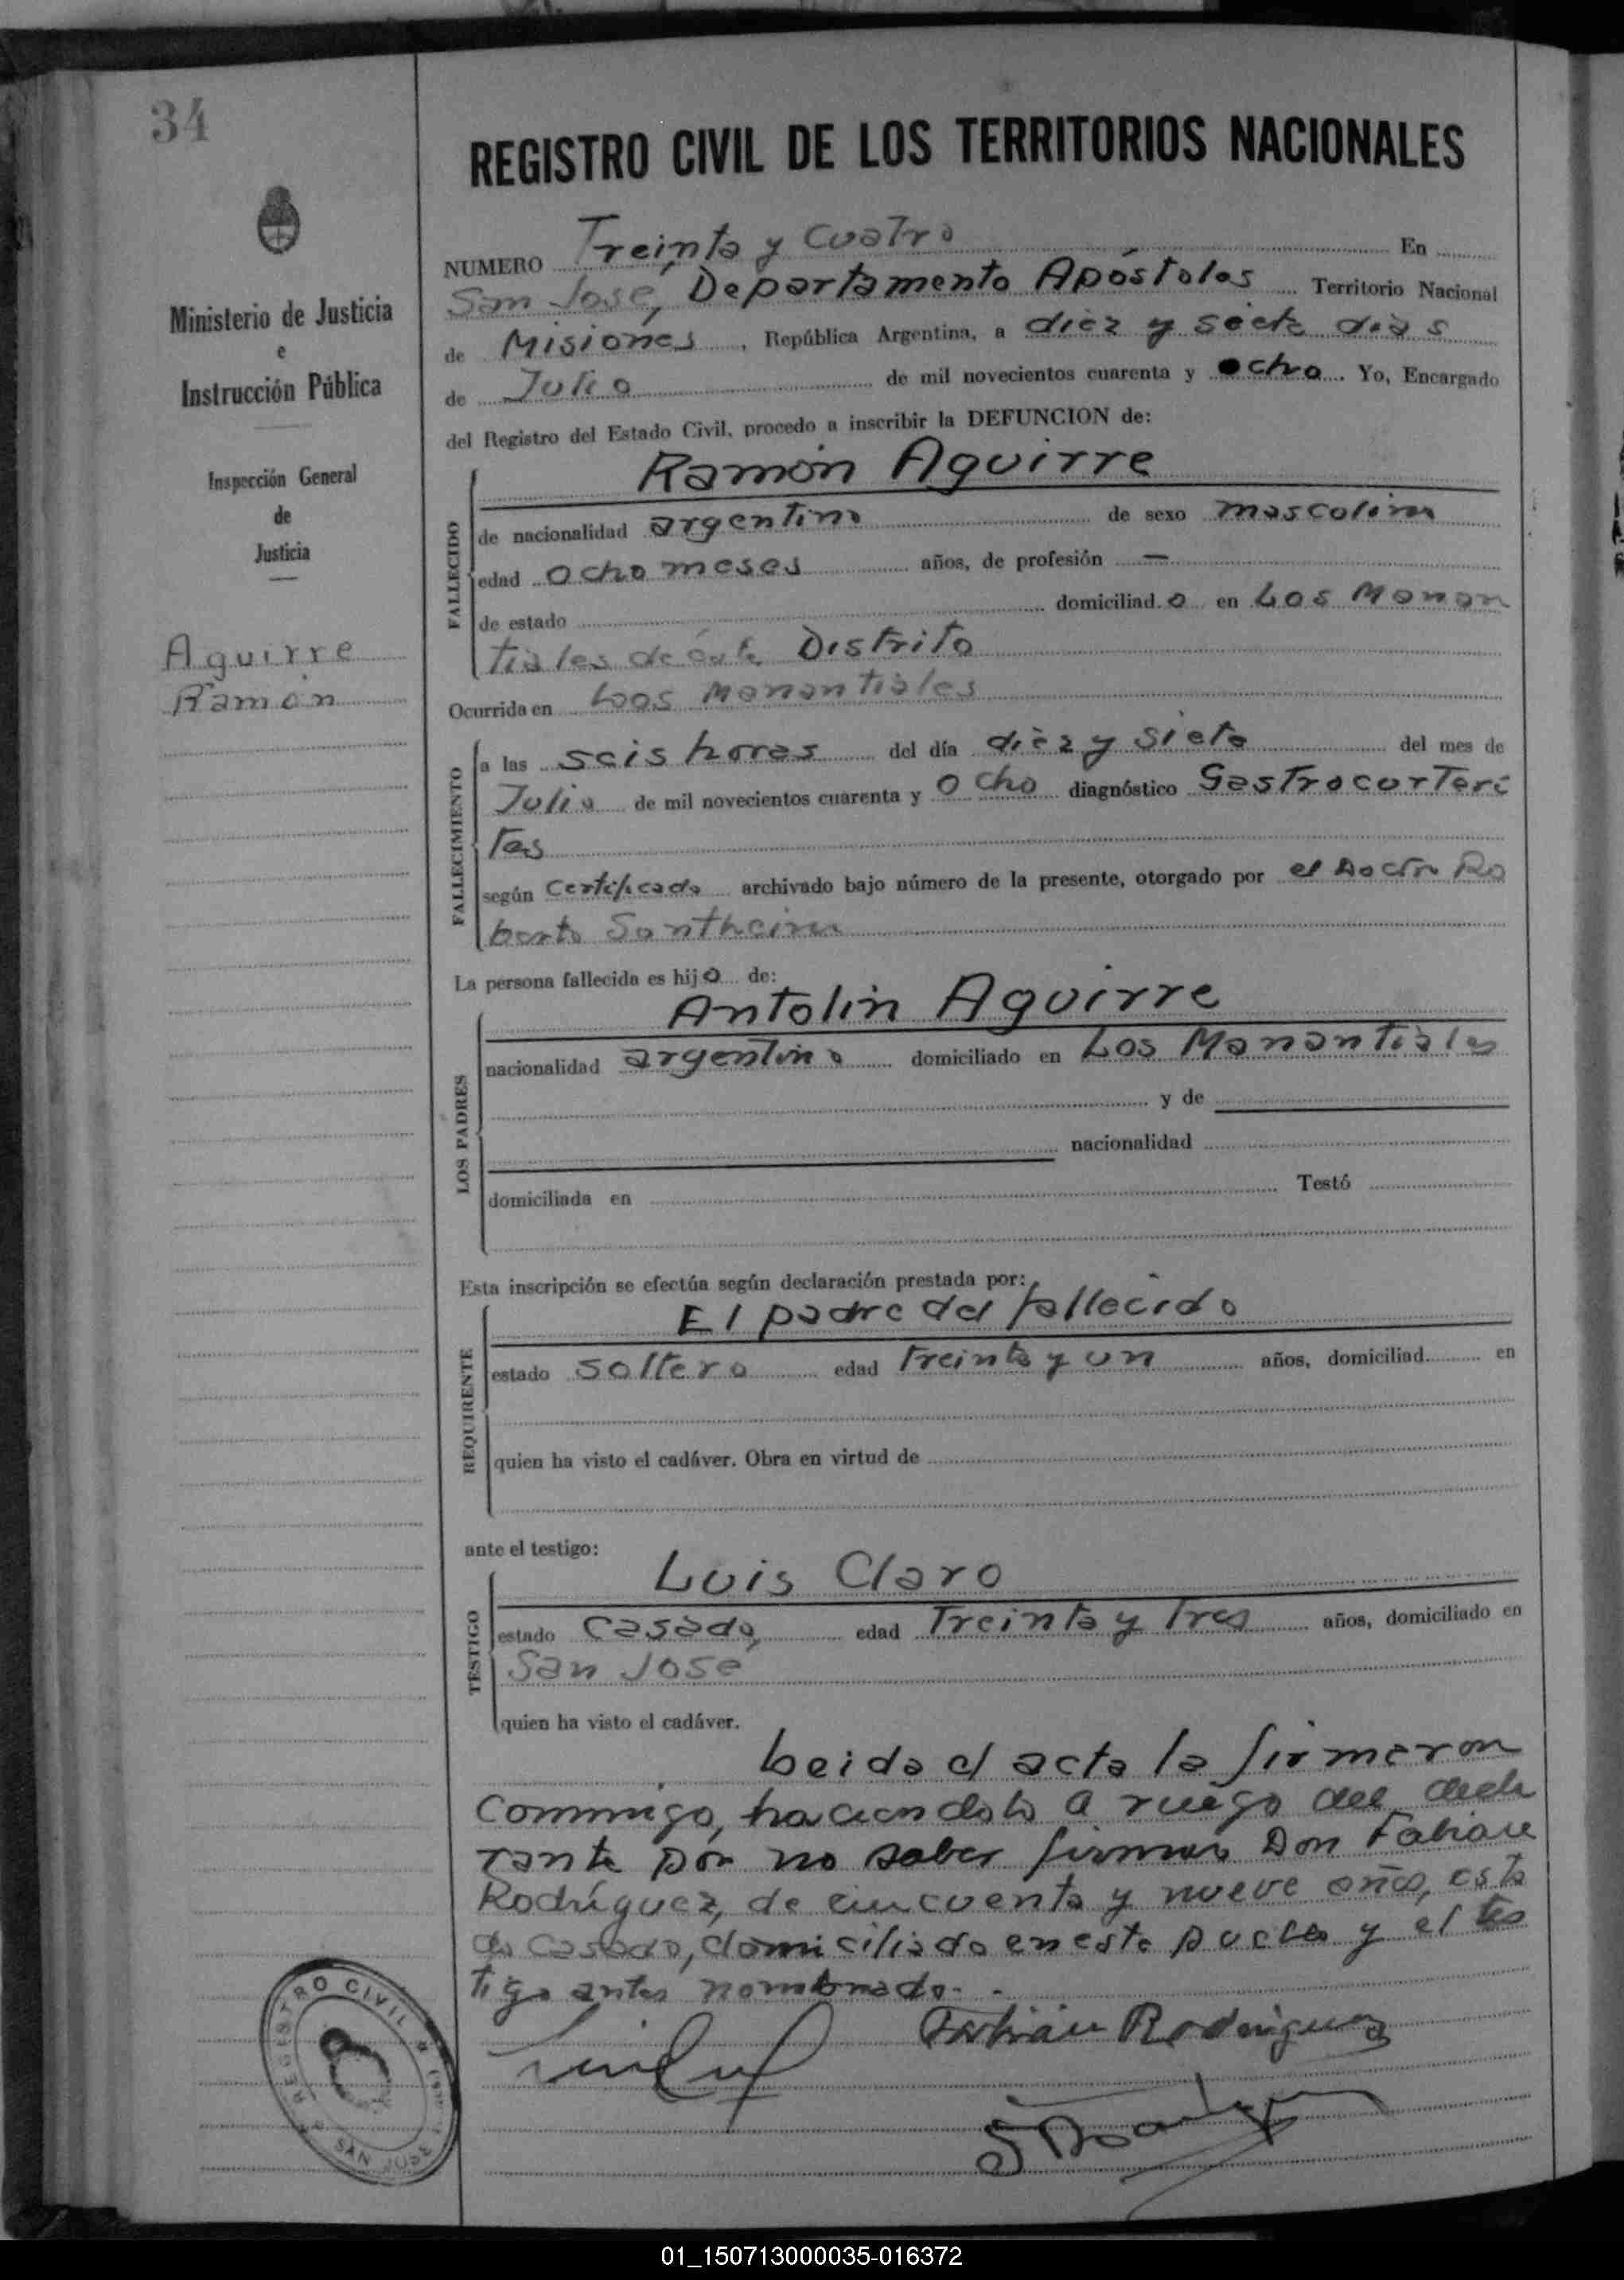 34
REGISTRO CIVIL DE LOS TERRITORIOS NACIONALES
Ministerio de Justicia
e
Instrucción Pública
Inspección General
de
Justicia
Aguirre
Ramón
NUMERO Treinta y Cuatro En
San José, Departamento Apóstoles Territorio Nacional
de Misiones, República Argentina, a diez y siete dias
de Julio de mil novecientos cuarenta y ocho. Yo, Encargado
del Registro del Estado Civil, procedo a inscribir la DEFUNCION de:
FALLECIDO
Ramón Aguirre
de nacionalidad argentino de sexo masculino
edad ocho meses años, de profesión —
de estado domiciliad.o en Los Manan
tiales de éste Distrito
Ocurrida en Loos Manantiales
FALLECIMIENTO
a las seis horas del día diez y siete del mes de
Julio de mil novecientos cuarenta y ocho diagnóstico
según Certificado archivado bajo número de la presente, otorgado por el Doctor Ro
berto
La persona fallecida es hijo de:
LOS PADRES
Antolin Aguirre
nacionalidad argentino domiciliado en Los Manantiales
y de
nacionalidad
domiciliada en Testó
Esta inscripción se efectúa según declaración prestada por:
REQUIRENTE
El padre del fallecido
estado soltero edad treinta y un años, domiciliad en
quien ha visto el cadáver. Obra en virtud de
ante el testigo:
TESTIGO
Luis Claro
estado Casado, edad Treinta y tres años, domiciliado en
San José
quien ha visto el cadáver.
Leida el acta la firmaron
conmigo, haciendolo a ruego del decla
rante por no saber firmar Don Fabian
Rodríguez, de cincuenta y nueve años, esta
do casado, domiciliado en este pueblo y el tes
tigo antes nombrado.
Fabián Rodriguez
REGISTRO CIVIL
SAN JOSE
01_150713000035-016372